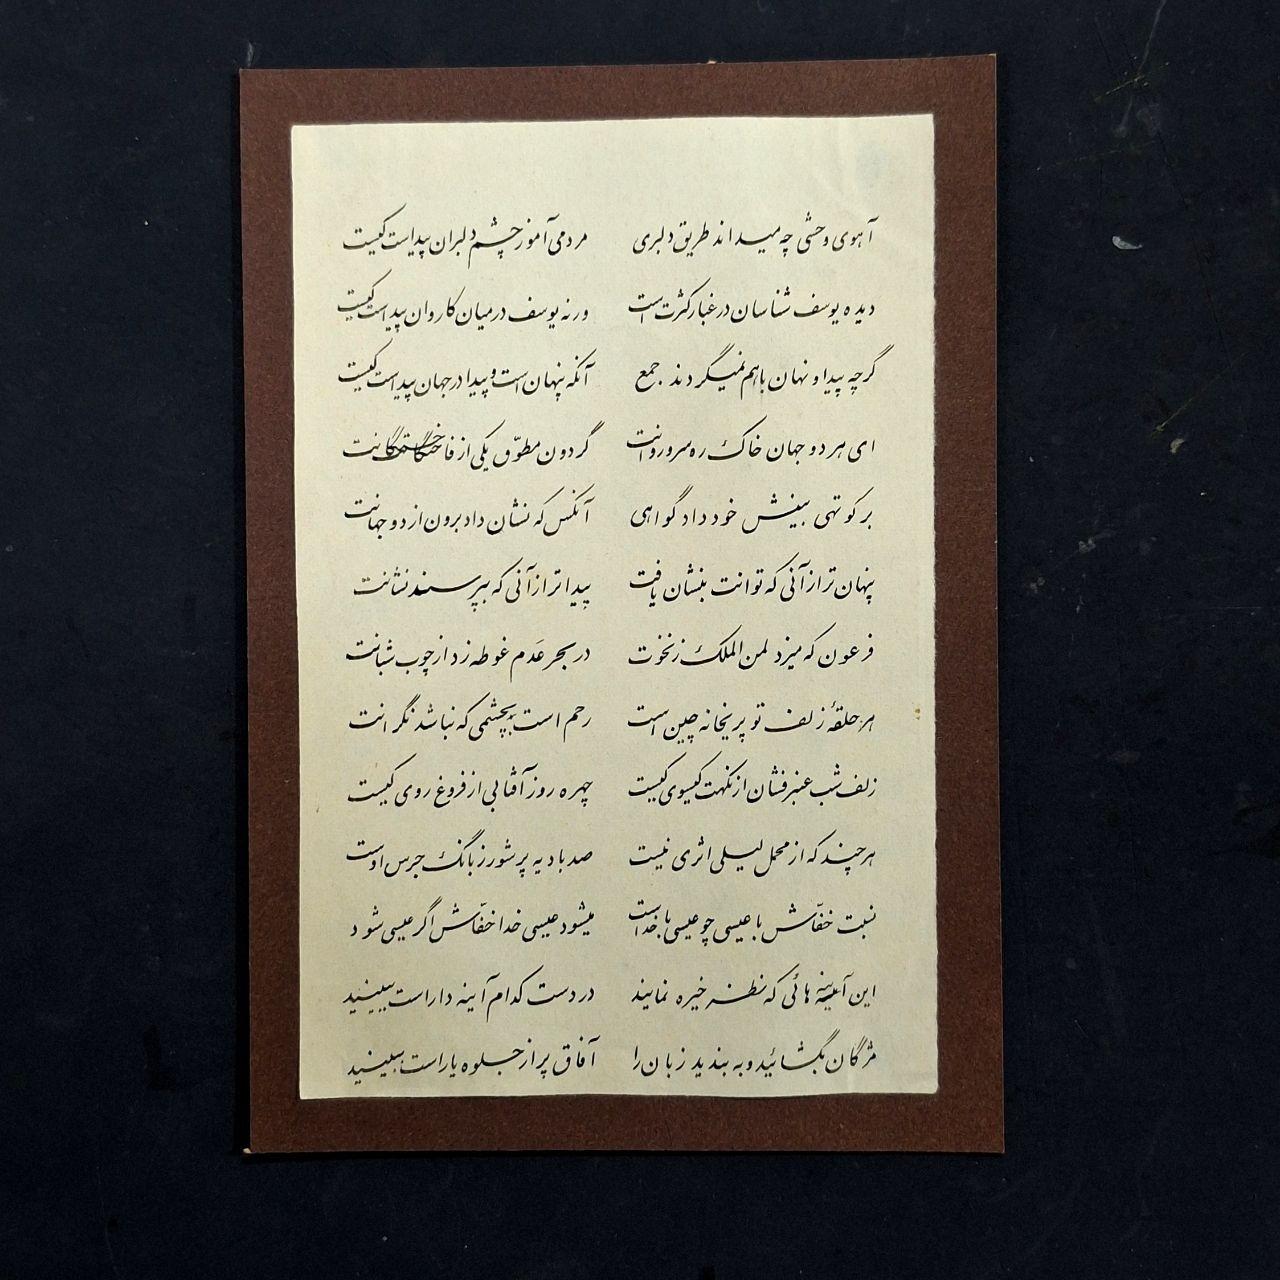 آهوی وحشی چه میداند طریق دلبری مردمی آموز چشم دلبران پیداست کیست
دیده یوسف شناسان در غبار کثرت است ورنه یوسف در میان کاروان پیداست کیست
گرچه پیدا و نهان باهم نمیگردند جمع آنکه پنهان است و پیدا در جهان پیداست کیست
ای هر دو جهان خاک ره سرو روانت گردون مطوّق یکی از فاختگانت
بر کوتهی بینش خود داد گواهی آنکس که نشان داد برون از دو جهانت
پنهان تر از آنی که توانت بنشان یافت پیداتر از آنی که بپرسند نشانت
فرعون که میزد لمن الملک ز نخوت در بحر عَدم غوطه زد از چوب شبانت
هر حلقهٔ زلف تو پریخانه چین است رحم است بچشمی که نباشد نگرانت
زلف شب عنبرفشان از نکهت گیسوی کیست چهره روز آفتابی از فروغ روی کیست
هرچند که از محمل لیلی اثری نیست صد بادیه پر شور ز بانگ جرس اوست
نسبت خفّاش با عیسی چو عیسی با خداست میشود عیسی خدا خفّاش اگر عیسی شود
این آینه هائی که نظر خیره نمایند در دست کدام آینه دار است ببینید
مژگان بگشائید و به بندید زبان را آفاق پر از جلوه یار است ببینید